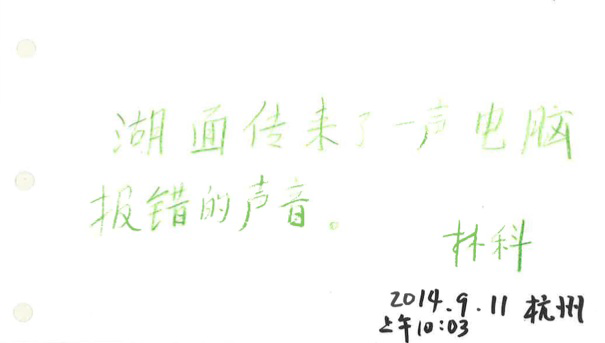 湖面传来了一声电脑
报错的声音。
林科
2014.9.11 杭州
上午10:03